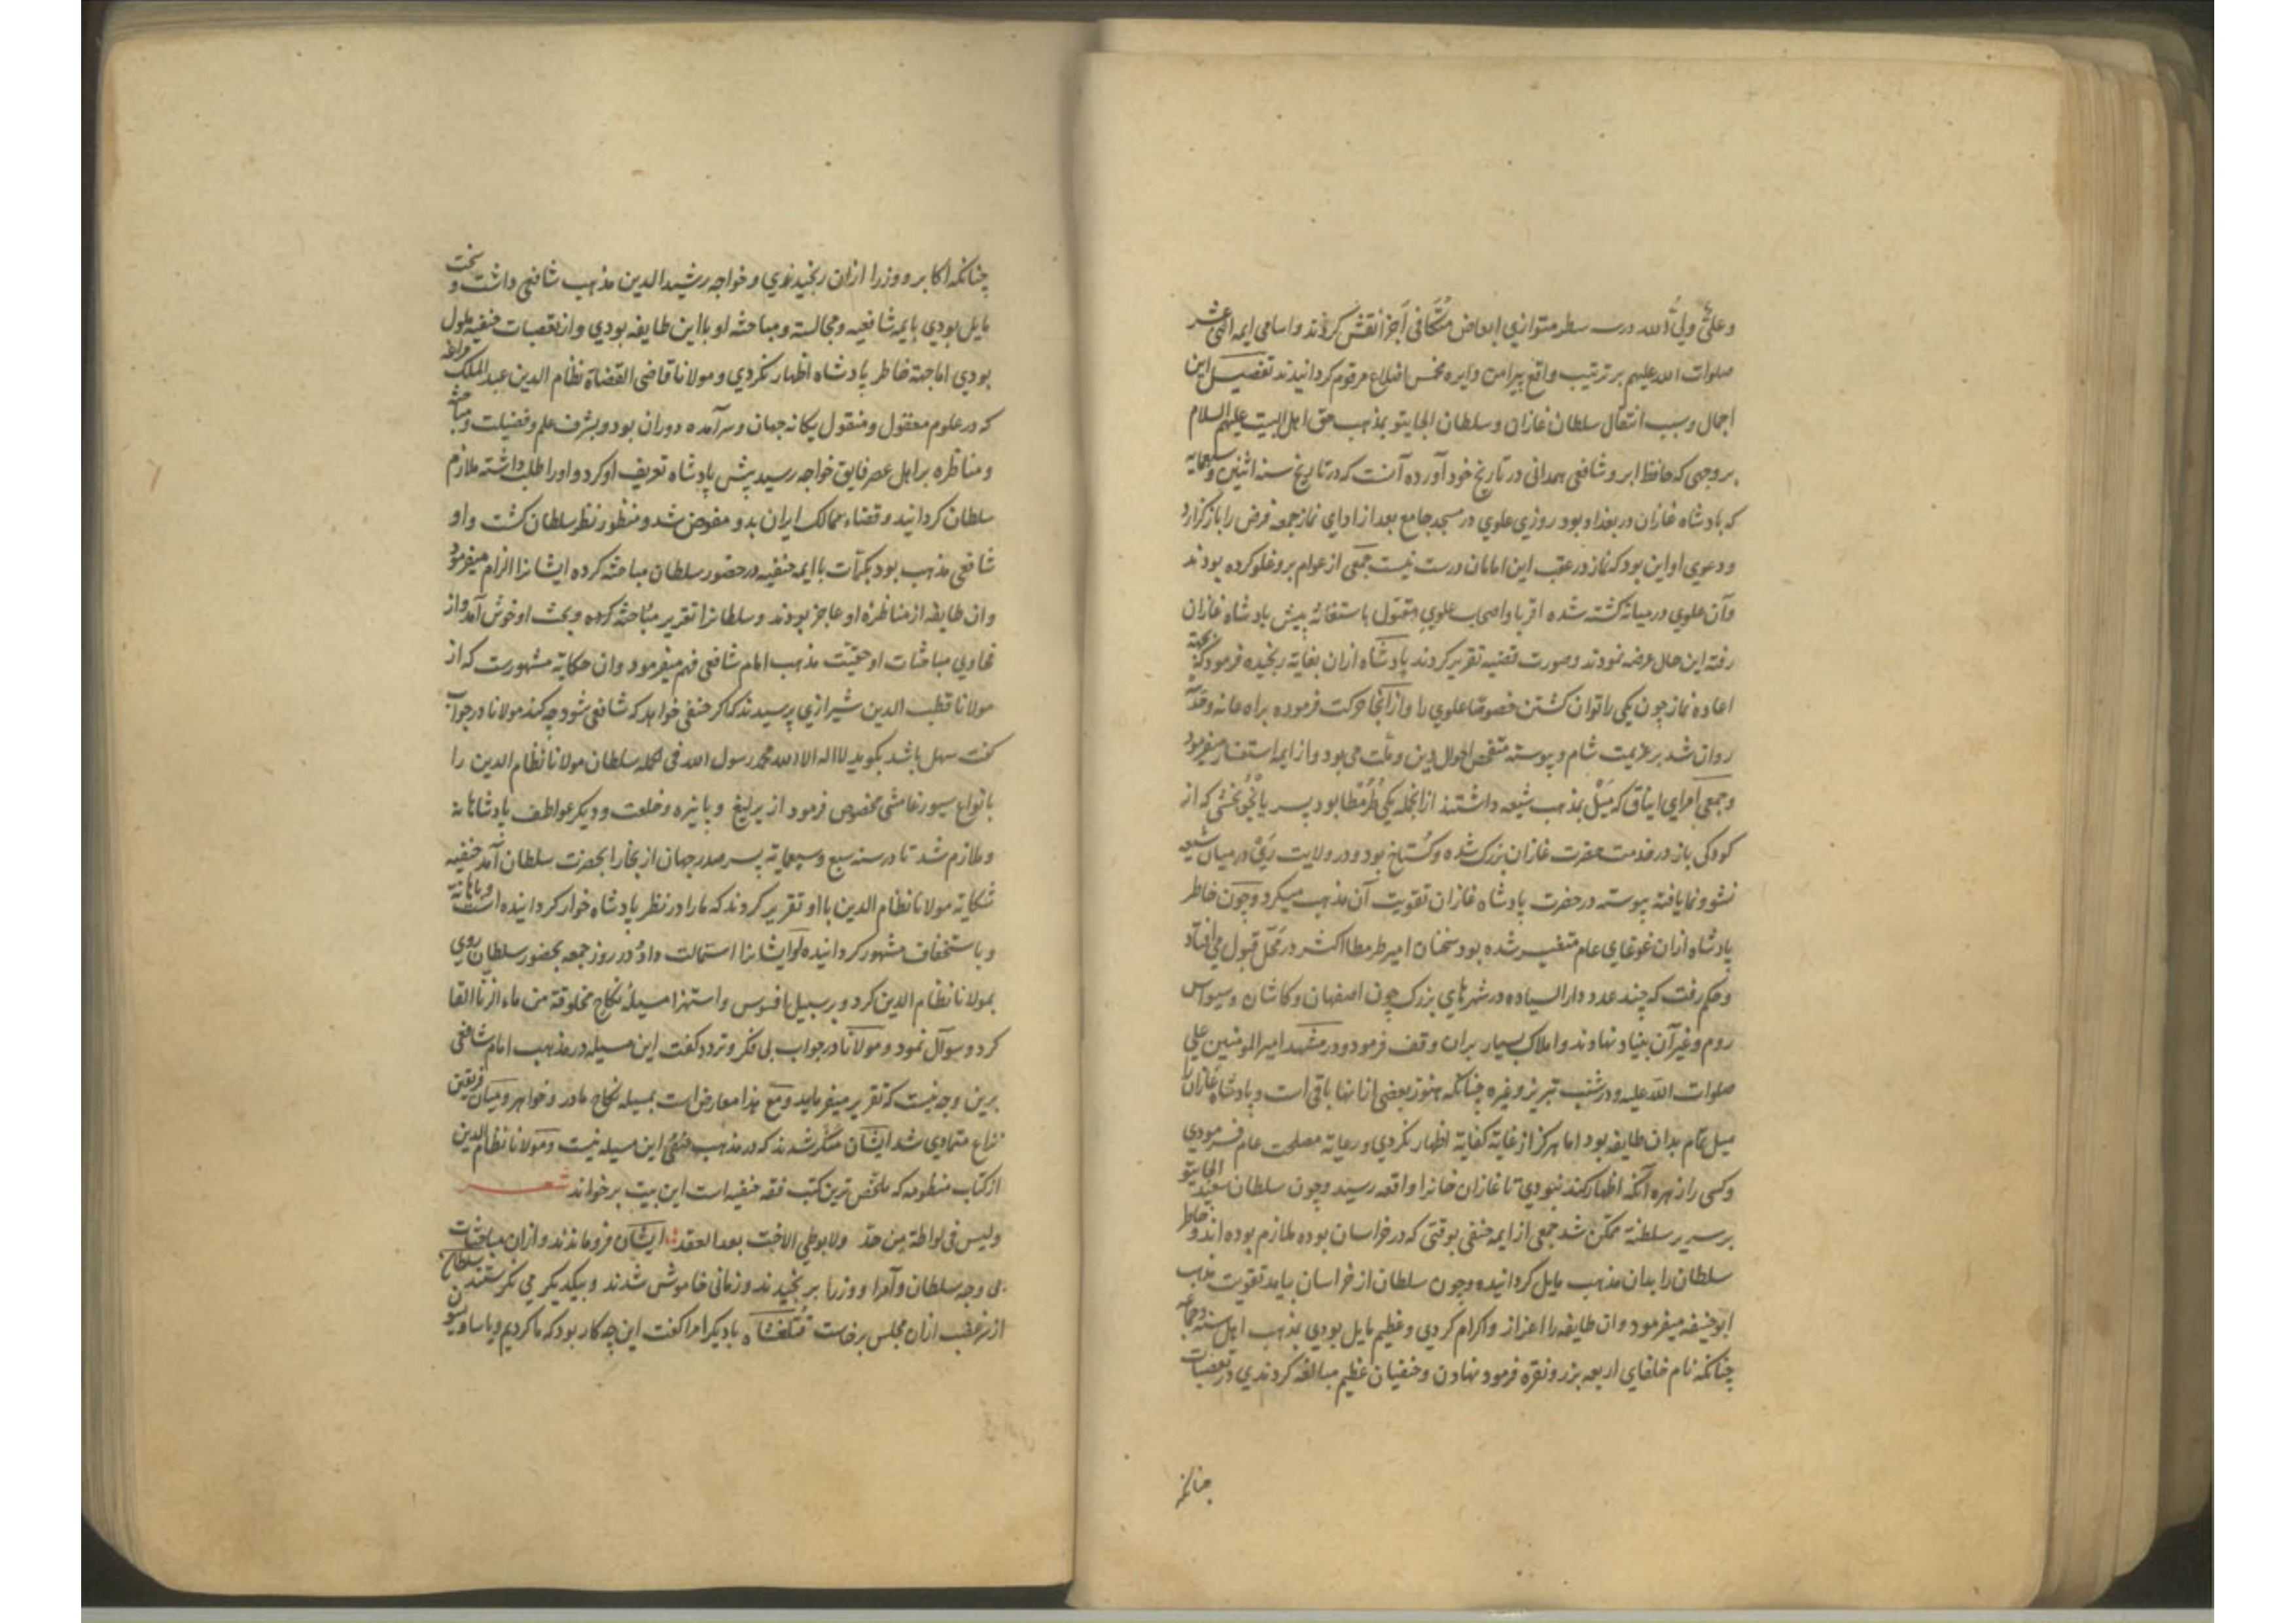 وعلیٌّ ولیُّ الله در سه سطر متوازی ابعاض متکافی اجزا نقش کردند و اسامی ایمه اثنی عشر
صلوات الله علیهم بر ترتیب واقع پیرامن دایره مخمس اضلاع مرقوم کردانیدند تفصیل این
اجمال و سبب انتقال سلطان غازان و سلطان الجایتو بمذهب حق اهل البیت علیهم السلام
بر وجهی که حافظ ابرو شافعی همدانی در تاریخ خود آورده آنست که در تاریخ سنه اثنین و سبعمایه
که بادشاه غازان در بغداد بود روزی علوی در مسجد جامع بعد از ادای نماز جمعه فرض را باز کزارد
و دعوی او این بود که نماز در عقب این امامان درست نیست جمعی از عوام برو غلو کرده بودند
و آن علوی در میانه کشته شده اقربا و اصحاب علوی مقتول باستغاثه پیش بادشاه غازان
رفته این حال عرضه نمودند و صورت قضیه تقریر کردند پادشاه ازان بغایة رنجیده فرمود که بجهة
اعاده نماز چون یکی را توان کشتن خصوصا علوی را و از آنجا حرکت فرموده براه عانه و حدیثه
روان شد بر عزیمت شام و پیوسته متفحص احوال دین و ملت می بود و از ایمه استفسار میفرمود
و جمعی امرای ایناق که میل بمذهب شیعه داشتند ازانجمله یکی طرمطا بود پسر بایجو بخشی که از
کودکی باز در خدمت حضرت غازان بزرک شده و کستاخ بود و در ولایت ری در میان شیعه
نشو و نما یافته پیوسته در حضرت پادشاه غازان تقویت آن مذهب میکرد و چون خاطر
پادشاه ازان غوغای عام متغیر شده بود سخنان امیر طرمطا اکثر در محل قبول می افتاد
و حکم رفت که چند عدد دار السیاده در شهرهای بزرک چون اصفهان و کاشان و سیواس
روم و غیر آن بنیاد نهادند و املاک بسیار بران وقف فرمود و در مشهد امیر المومنین علی
صلوات الله علیه و در شنب تبریز و غیره چنانکه هنوز بعضی ازانها باقی است و پادشاه غازان را
میل تمام بدان طایفه بود اما هرکز از غایة کفایة اظهار نکردی و رعایة مصلحت عام فرمودی
و کسی را زهره آنکه اظهار کند نبودی تا غازان خانرا واقعه رسید و چون سلطان سعید الجایتو
بر سریر سلطنة متمکن شد جمعی از ایمه حنفی بوقتی که در خراسان بوده ملازم بوده اند و خاطر
سلطان را بدان مذهب مایل کردانیده و چون سلطان از خراسان بیامد تقویت مذهب
ابو حنیفه میفرمود و ان طایفه را اعزاز و اکرام کردی و عظیم مایل بودی بمذهب اهل سنة و جماعة
چنانکه نام خلفای اربعه بزر و نقره فرمود نهادن و حنفیان عظیم مبالغه کردندی در تعصبات
چنانکه
چنانکه اکابر و وزرا ازان رنجیدندی و خواجه رشید الدین مذهب شافعی داشت و سخت
مایل بودی بایمه شافعیه و مجالسة و مباحثه او با این طایفه بودی و از تعصبات حنفیه ملول
بودی اما جهة خاطر پادشاه اظهار نکردی و مولانا قاضی القضاة نظام الدین عبد الملک مراغه
که در علوم معقول و منقول یکانه جهان و سرآمده دوران بود و بشرف علم و فضیلت و مباحثه
و مناظره بر اهل عصر فایق خواجه رسید پیش پادشاه تعریف او کرد و او را طلب داشته ملازم
سلطان کردانید و قضاء ممالک ایران بدو مفوض شد و منظور نظر سلطان کشت و او
شافعی مذهب بود بکرّات با ایمه حنفیه در حضور سلطان مباحثه کرده ایشانرا الزام میفرمود
و ان طایفه از مناظرهٔ او عاجز بودند و سلطانرا تقریر مباحثه کرده و بحث او خوش آمد و از
فحاوی مباحثات او حقیّت مذهب امام شافعی فهم میفرمود و ان حکایة مشهورست که از
مولانا قطب الدین شیرازی پرسیدند که اکر حنفی خواهد که شافعی شود چه کند مولانا در جواب
کفت سهل باشد بکوید لا اله الا الله محمد رسول الله فی الجمله سلطان مولانا نظام الدین را
بانواع سیورغامشی مخصوص فرمود از یرلیغ و پایزه و خلعت و دیکر عواطف پادشاهانه
و ملازم شد تا در سنه سبع و سبعمایه پسر صدر جهان از بخارا بحضرت سلطان آمد حنفیه
شکایة مولانا نظام الدین با او تقریر کردند که ما را در نظر پادشاه خوار کردانیده است و باهانة
و باستخفاف مشهور کردانیده او ایشانرا استمالت داد و در روز جمعه بحضور سلطان روی
بمولانا نظام الدین کرد و بر سبیل افسوس و استهزا مسیله نکاح مخلوقة من ماء الزنا القا
کرد و سوآل نمود و مولانا در جواب بی فکر و تردد کفت این مسیله در مذهب امام شافعی
برین وجه نیست که تقریر میفرماید و مع هذا معارض است بمسیله نکاح مادر و خواهر و میان فریقین
نزاع متمادی شد ایشان منکر شدند که در مذهب حنفی این مسیله نیست و مولانا نظام الدین
از کتاب منظومه که ملخص ترین کتب فقه حنفیه است این بیت برخواند شعر
ولیس فی لواطة من حد ولا بوطی الاخت بعد العقد ایشان فرو ماندند و ازان مباحثات
بی وجه سلطان و امرا و وزرا برنجیدند و زمانی خاموش شدند و بیکدیکر می نکرستند سلطان
از سر غضب ازان مجلس برخاست قتلغشاه با دیکر امرا کفت این چه کار بود که ما کردیم و یاسا و یسون